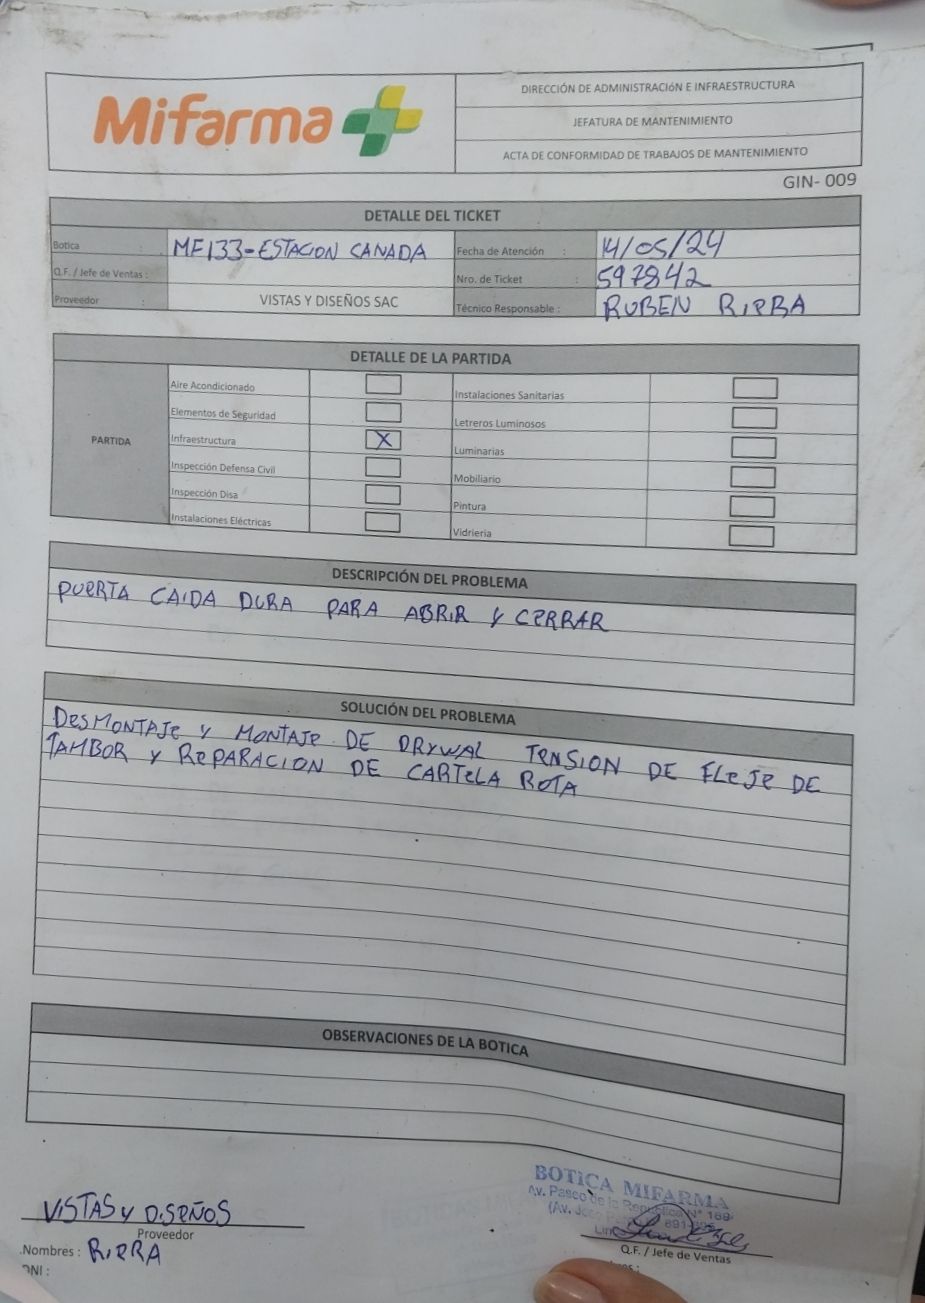 Mifarma
DIRECCIÓN DE ADMINISTRACIÓN E INFRAESTRUCTURA
JEFATURA DE MANTENIMIENTO
ACTA DE CONFORMIDAD DE TRABAJOS DE MANTENIMIENTO
GIN- 009
DETALLE DEL TICKET
Botica : MF133-ESTACION CANADA Fecha de Atención : 14/05/24
Q.F. / Jefe de Ventas : Nro. de Ticket : 597842
Proveedor : VISTAS Y DISEÑOS SAC Técnico Responsable : RUBEN RIERA
DETALLE DE LA PARTIDA
PARTIDA
Aire Acondicionado Instalaciones Sanitarias
Elementos de Seguridad Letreros Luminosos
Infraestructura X Luminarias
Inspección Defensa Civil Mobiliario
Inspección Disa Pintura
Instalaciones Eléctricas Vidrieria
DESCRIPCIÓN DEL PROBLEMA
PUERTA CAIDA DURA PARA ABRIR Y CERRAR
SOLUCIÓN DEL PROBLEMA
DESMONTAJE Y MONTAJE DE DRYWAL TENSION DE FLEJE DE
TAMBOR Y REPARACION DE CARTELA ROTA
OBSERVACIONES DE LA BOTICA
VISTAS Y DISEÑOS
Proveedor
Nombres : RIERA
DNI :
BOTICA MIFARMA
Av. Paseo de la Republica N° 169
(Av.
Q.F. / Jefe de Ventas